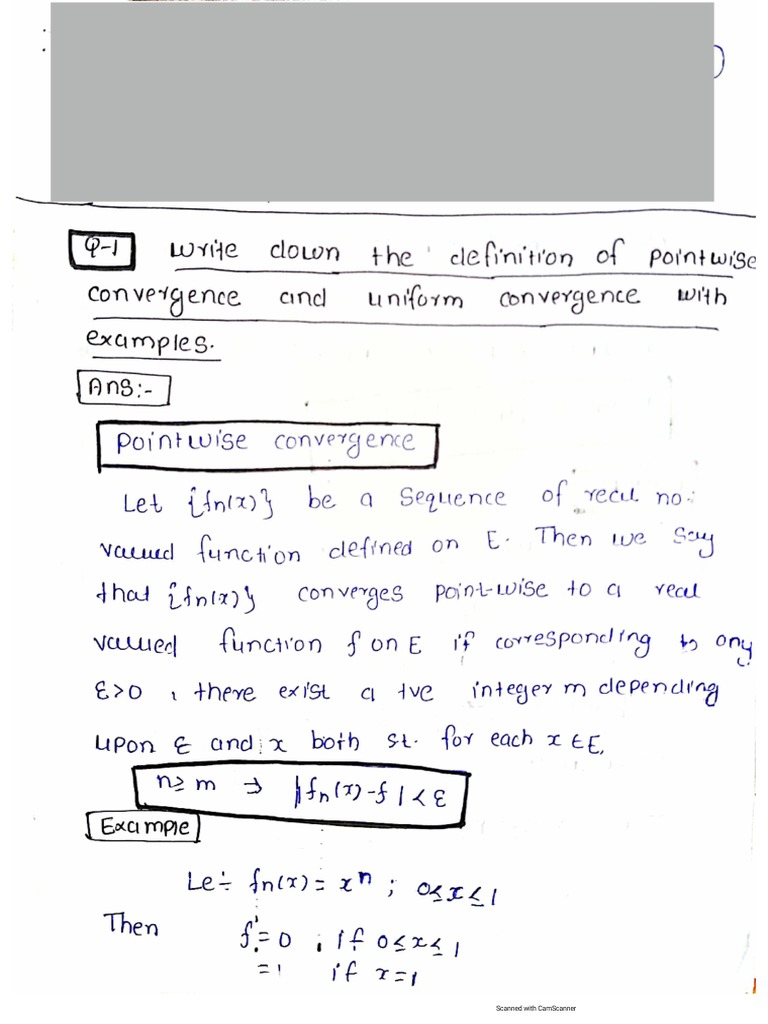 Q-1 Write down the definition of pointwise
convergence and uniform convergence with
examples.
Ans:-
Pointwise convergence
Let {fn(x)} be a sequence of real no.
valued function defined on E. Then we say
that {fn(x)} converges point-wise to a real
valued function f on E if corresponding to any
ε>0, there exist a +ve integer m depending
upon ε and x both st. for each x ∈ E,
n ≥ m ⇒ |fn(x)-f| < ε
Example
Let fn(x) = xⁿ ; 0≤x≤1
Then f = 0 , if 0≤x≤1
=1 if x=1
Scanned with CamScanner